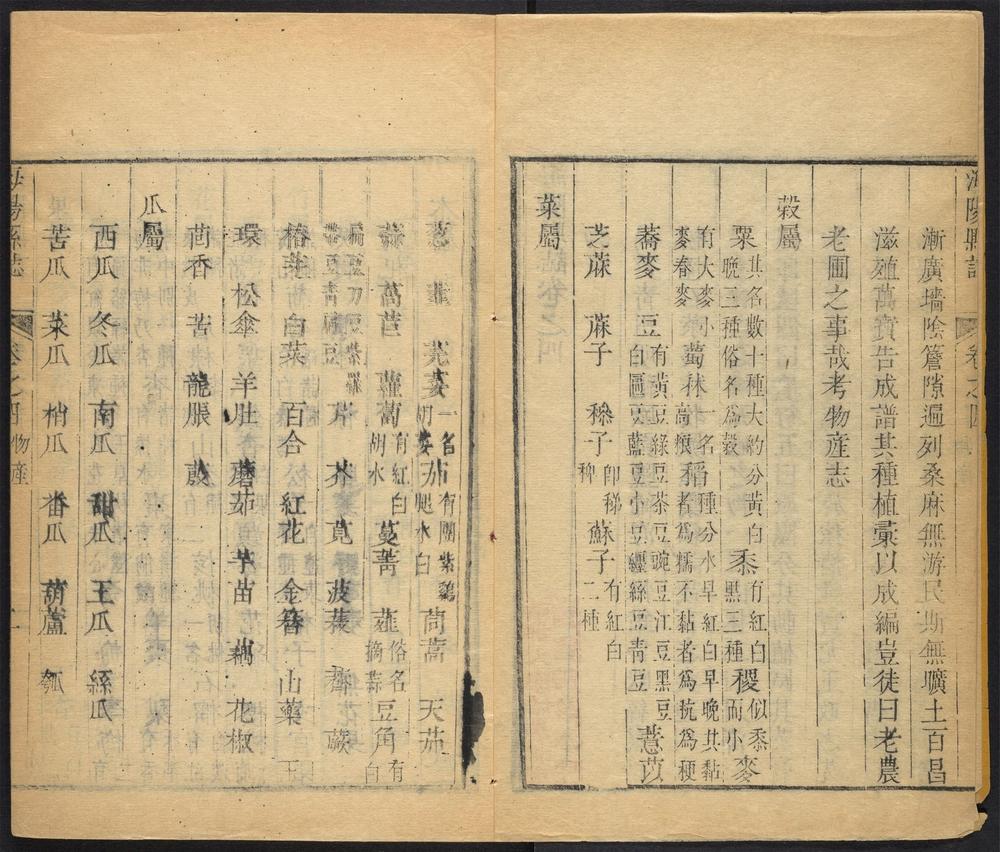 海陽縣誌 卷之四
漸廣墻陰簷隙遍列桑麻無游民斯無曠土百昌
滋殖萬寳告成譜其種植彙以成編豈徒曰老農
老圃之事哉考物産志
穀屬
粟其名數十種大約分黃白晚三種俗名爲穀黍有紅白黑三種稷似黍而小麥
有大麥小麥春麥蜀秫一名高糧稻種分水旱紅白早晚其黏者爲糯不黏者爲秔爲粳
蕎麥 豆有黃豆綠豆茶豆豌豆江豆黑豆白匾豆藍豆小豆纏絲豆青豆薏苡
芝蔴 蔴子 穇子卽稊稗蘇子有紅白二種
菜屬
葱 韮 芫荽一名胡荽茄有團紫鷄腿水白茼蒿 天茄
蒜 萵苣 蘿蔔有紅白胡水蔓菁 薤俗名摘蒜豆角有白
匾豆刀豆紫羅豆青豌豆芹 芥 莧 菠薐 薺 蕨
椿 白菜 百合 紅花 金簪 山藥 玉
環 松傘 羊肚 蘑菇 芋苗 藕 花椒
茴香 苦龍脹
瓜屬
西瓜 冬瓜 南瓜 甜瓜 王瓜 絲瓜
苦瓜 菜瓜 梢瓜 番瓜 葫蘆 瓠
海陽縣誌 卷之四 物産 二